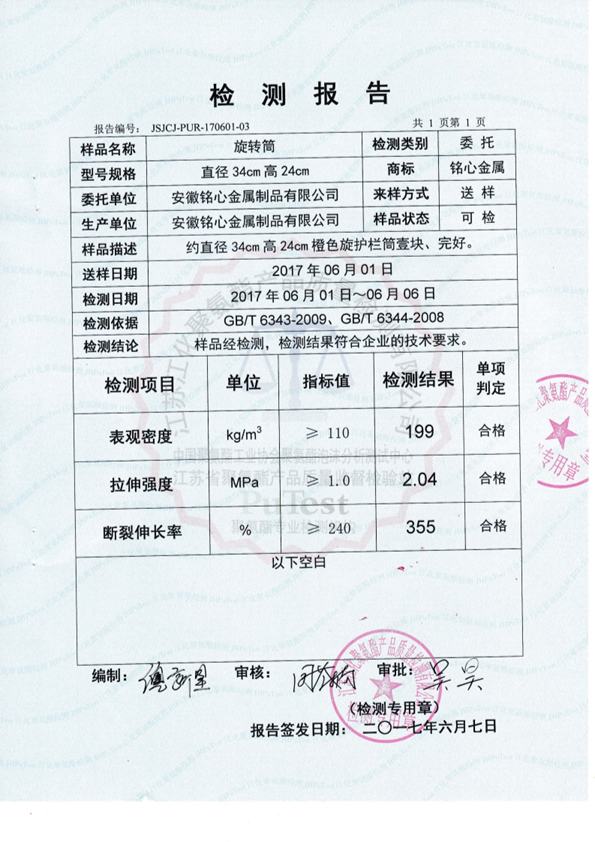 检测报告
报告编号： JSJCJ-PUR-170601-03 共 1 页第 1 页
样品名称 旋转筒 检测类别 委 托
型号规格 直径34cm高24cm 商标 铭心金属
委托单位 安徽铭心金属制品有限公司 来样方式 送 样
生产单位 安徽铭心金属制品有限公司 样品状态 可 检
样品描述 约直径34cm高24cm橙色旋护栏筒壹块、完好。
送样日期 2017年06月01日
检测日期 2017年06月01日～06月06日
检测依据 GB/T 6343-2009、GB/T 6344-2008
检测结论 样品经检测，检测结果符合企业的技术要求。
检测项目 单位 指标值 检测结果 单项判定
表观密度 kg/m³ ≥ 110 199 合格
中国聚氨酯工业协会聚氨酯泡沫分析测试中心
江苏省聚氨酯产品质量监督检验站
拉伸强度 MPa ≥ 1.0 2.04 合格
PuTest
断裂伸长率 % ≥ 240 355 合格
以下空白
编制： 审核： 审批： 吴昊
（检测专用章）
检测专用章
报告签发日期： 二〇一七年六月七日
聚氨酯产品质
专用章